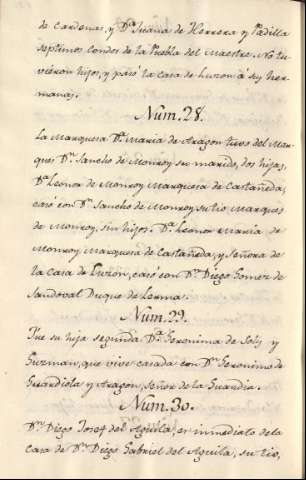 de Cardenas, y D.ª Juana de Herrera y Padilla
septimos Condes de la Puebla del Maestre. No tu-
vieron hijos, y pasó la casa de Luzon à su her-
mana.
Num. 28.
La Marquesa D.ª Maria de Aragon tuvo del Mar-
ques D.n Sancho de Monroy su marido, dos hijas,
D.ª Leonor de Monroy Marquesa de Castañeda,
casó con D.n Sancho de Monroy su tio, Marques
de Monroy, sin hijos. D.ª Leonor Maria de
Monroy Marquesa de Castañeda, y Señora de
la Casa de Luzon, casó con D.n Diego Gomez de
Sandoval Duque de Lerma.
Num. 29.
Fue su hija segunda D.ª Geronima de Solis y
Guzman, que vive casada con D.n Geronimo de
Guardiola y Aragon, Señor de la Guardia.
Num. 30.
D.n Diego Josef del Aguila, es inmediato de la
Casa de D.n Diego Gabriel del Aguila, su tio,